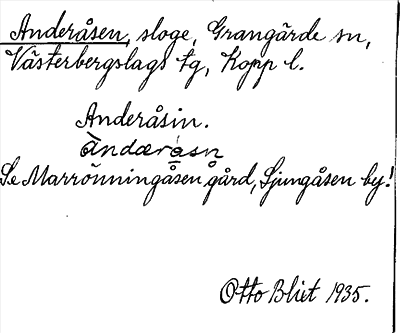 Anderåsen, sloge, Grangärde sn,
Västerbergslags tg, Kopp l.
Anderåsin.
àndæråsn
Se Marrönningåsen gård, Ljungåsen by!
Otto Blixt 1935.